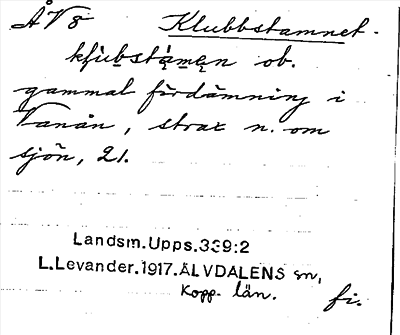 ÅV8 Klubbstamnet.
klubbstamen ob.
gammal fördämning i
Vanån, strax n. om
sjön, 21.
Landsm.Upps.339:2
L.Levander.1917.ÄLVDALENS sn,
Kopp. län. fi.